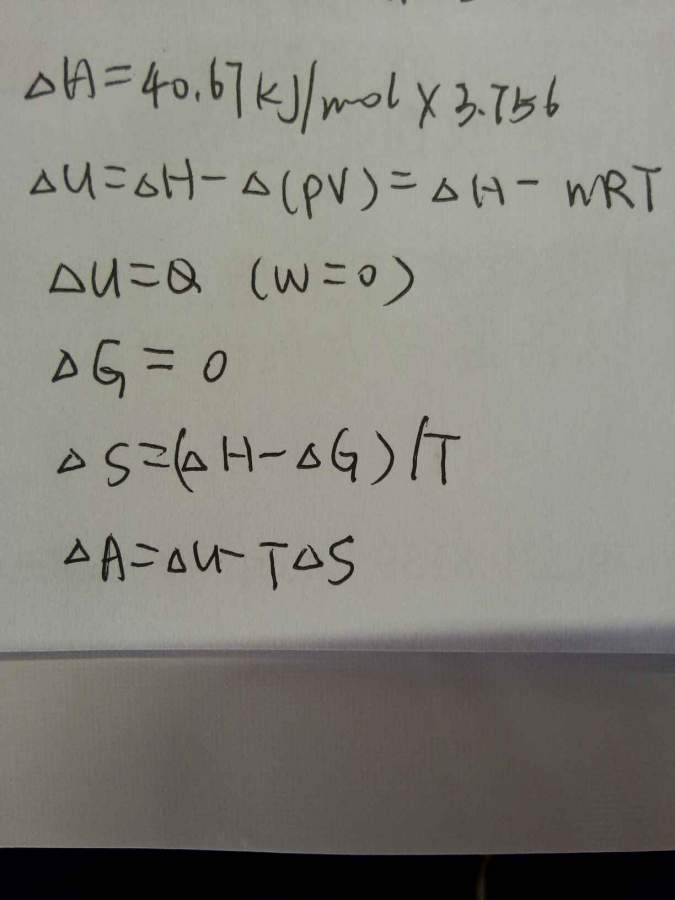 △H=40.67kJ/mol×3.756
△U=△H-△(PV)=△H-nRT
△U=Q (W=0)
△G=0
△S=(△H-△G)/T
△A=△U-T△S